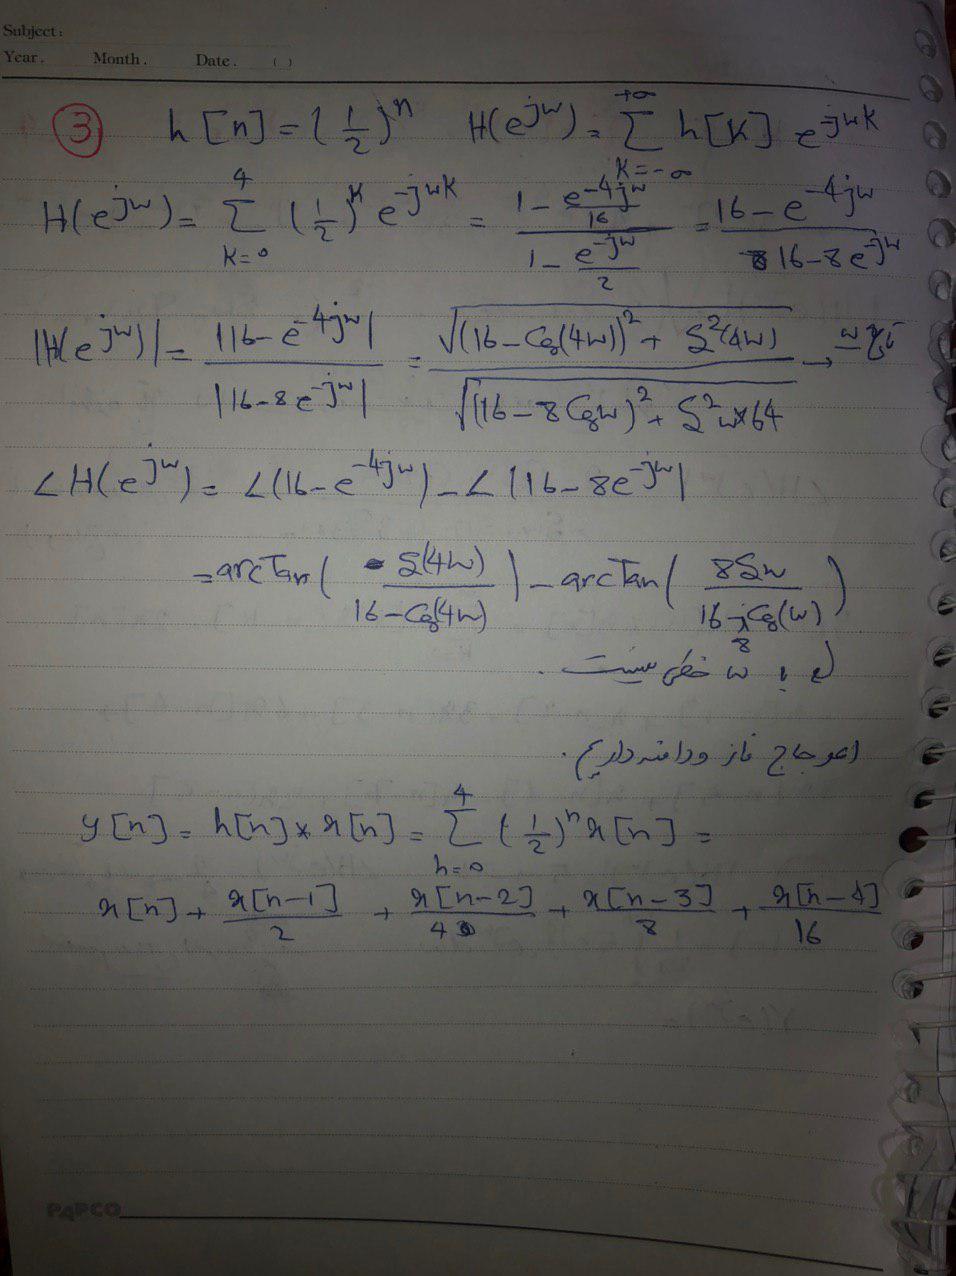 Subject:
Year. Month. Date. ( )
3 h[n] = (1/2)^n H(e^jw) = Σ_{k=-∞}^{+∞} h[k] e^-jwk
H(e^jw) = Σ_{k=0}^{4} (1/2)^k e^-jwk = (1 - e^-4jw/16)/(1 - e^-jw/2) = (16 - e^-4jw)/(16 - 8e^-jw)
|H(e^jw)| = |16 - e^-4jw|/|16 - 8e^-jw| = √((16 - Cos(4w))^2 + S^2(4w))/√((16 - 8Cosw)^2 + S^2w×64) →
∠H(e^jw) = ∠(16 - e^-4jw) - ∠|16 - 8e^-jw|
= arcTan(S(4w)/(16 - Cos(4w))) - arcTan(8Sw/(16 - 8Cos(w)))
با w خطی نیست.
اعوجاج فاز و دامنه داریم.
y[n] = h[n] * x[n] = Σ_{n=0}^{4} (1/2)^n x[n] =
x[n] + x[n-1]/2 + x[n-2]/4 + x[n-3]/8 + x[n-4]/16
PAPCO